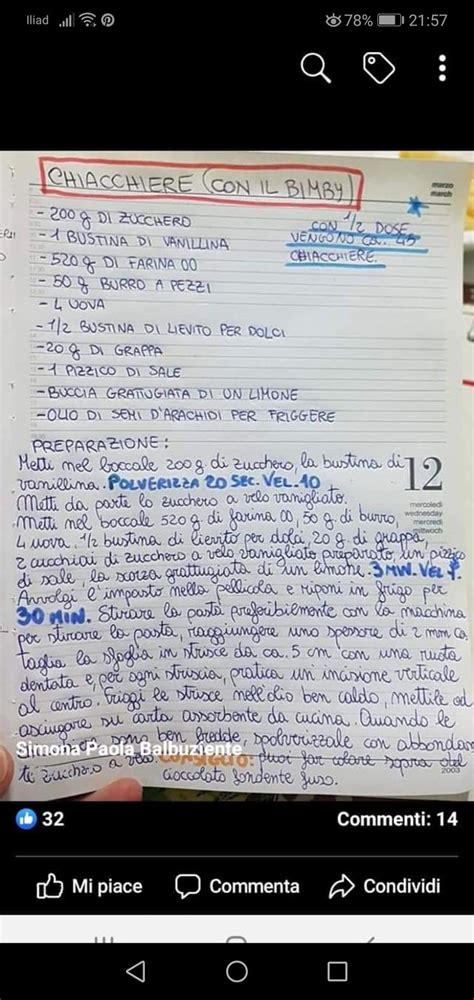 Iliad
78% 21:57
CHIACCHIERE (CON IL BIMBY)
marzo
march
- 200 g DI ZUCCHERO
- 1 BUSTINA DI VANILLINA
- 520 g DI FARINA 00
- 50 g BURRO A PEZZI
- 4 UOVA
- 1/2 BUSTINA DI LIEVITO PER DOLCI
- 20 g DI GRAPPA
- 1 PIZZICO DI SALE
- BUCCIA GRATTUGIATA DI UN LIMONE
- OLIO DI SEMI D'ARACHIDI PER FRIGGERE
CON 1/2 DOSE
VENGONO CA. 45
CHIACCHIERE
PREPARAZIONE:
Metti nel boccale 200 g di zucchero, la bustina di
vanillina. POLVERIZZA 20 SEC. VEL. 10
Metti da parte lo zucchero a velo vanigliato.
Metti nel boccale 520 g di farina 00, 50 g di burro,
4 uova, 1/2 bustina di lievito per dolci, 20 g di grappa,
2 cucchiai di zucchero a velo vanigliato preparato, un pizzico
di sale, la scorza grattugiata di un limone. 3 MIN. VEL
Avvolgi l'impasto nella pellicola e riponi in frigo per
30 MIN. Stirare la pasta preferibilmente con la macchina
per stirare la pasta, raggiungere uno spessore di 2 mm ca
taglia la sfoglia in strisce da ca. 5 cm con una ruota
dentata e, per ogni striscia, pratica un incisione verticale
al centro. Friggi le strisce nell'olio ben caldo, mettile ad
asciugare su carta assorbente da cucina. Quando le
sono ben fredde, spolverizzale con abbondan
te zucchero a velo. CONSIGLIO: Puoi far colare sopra del
cioccolato fondente fuso.
12
mercoledì
wednesday
mercredi
mittwoch
2003
Simona Paola Balbuziente
32
Commenti: 14
Mi piace
Commenta
Condividi